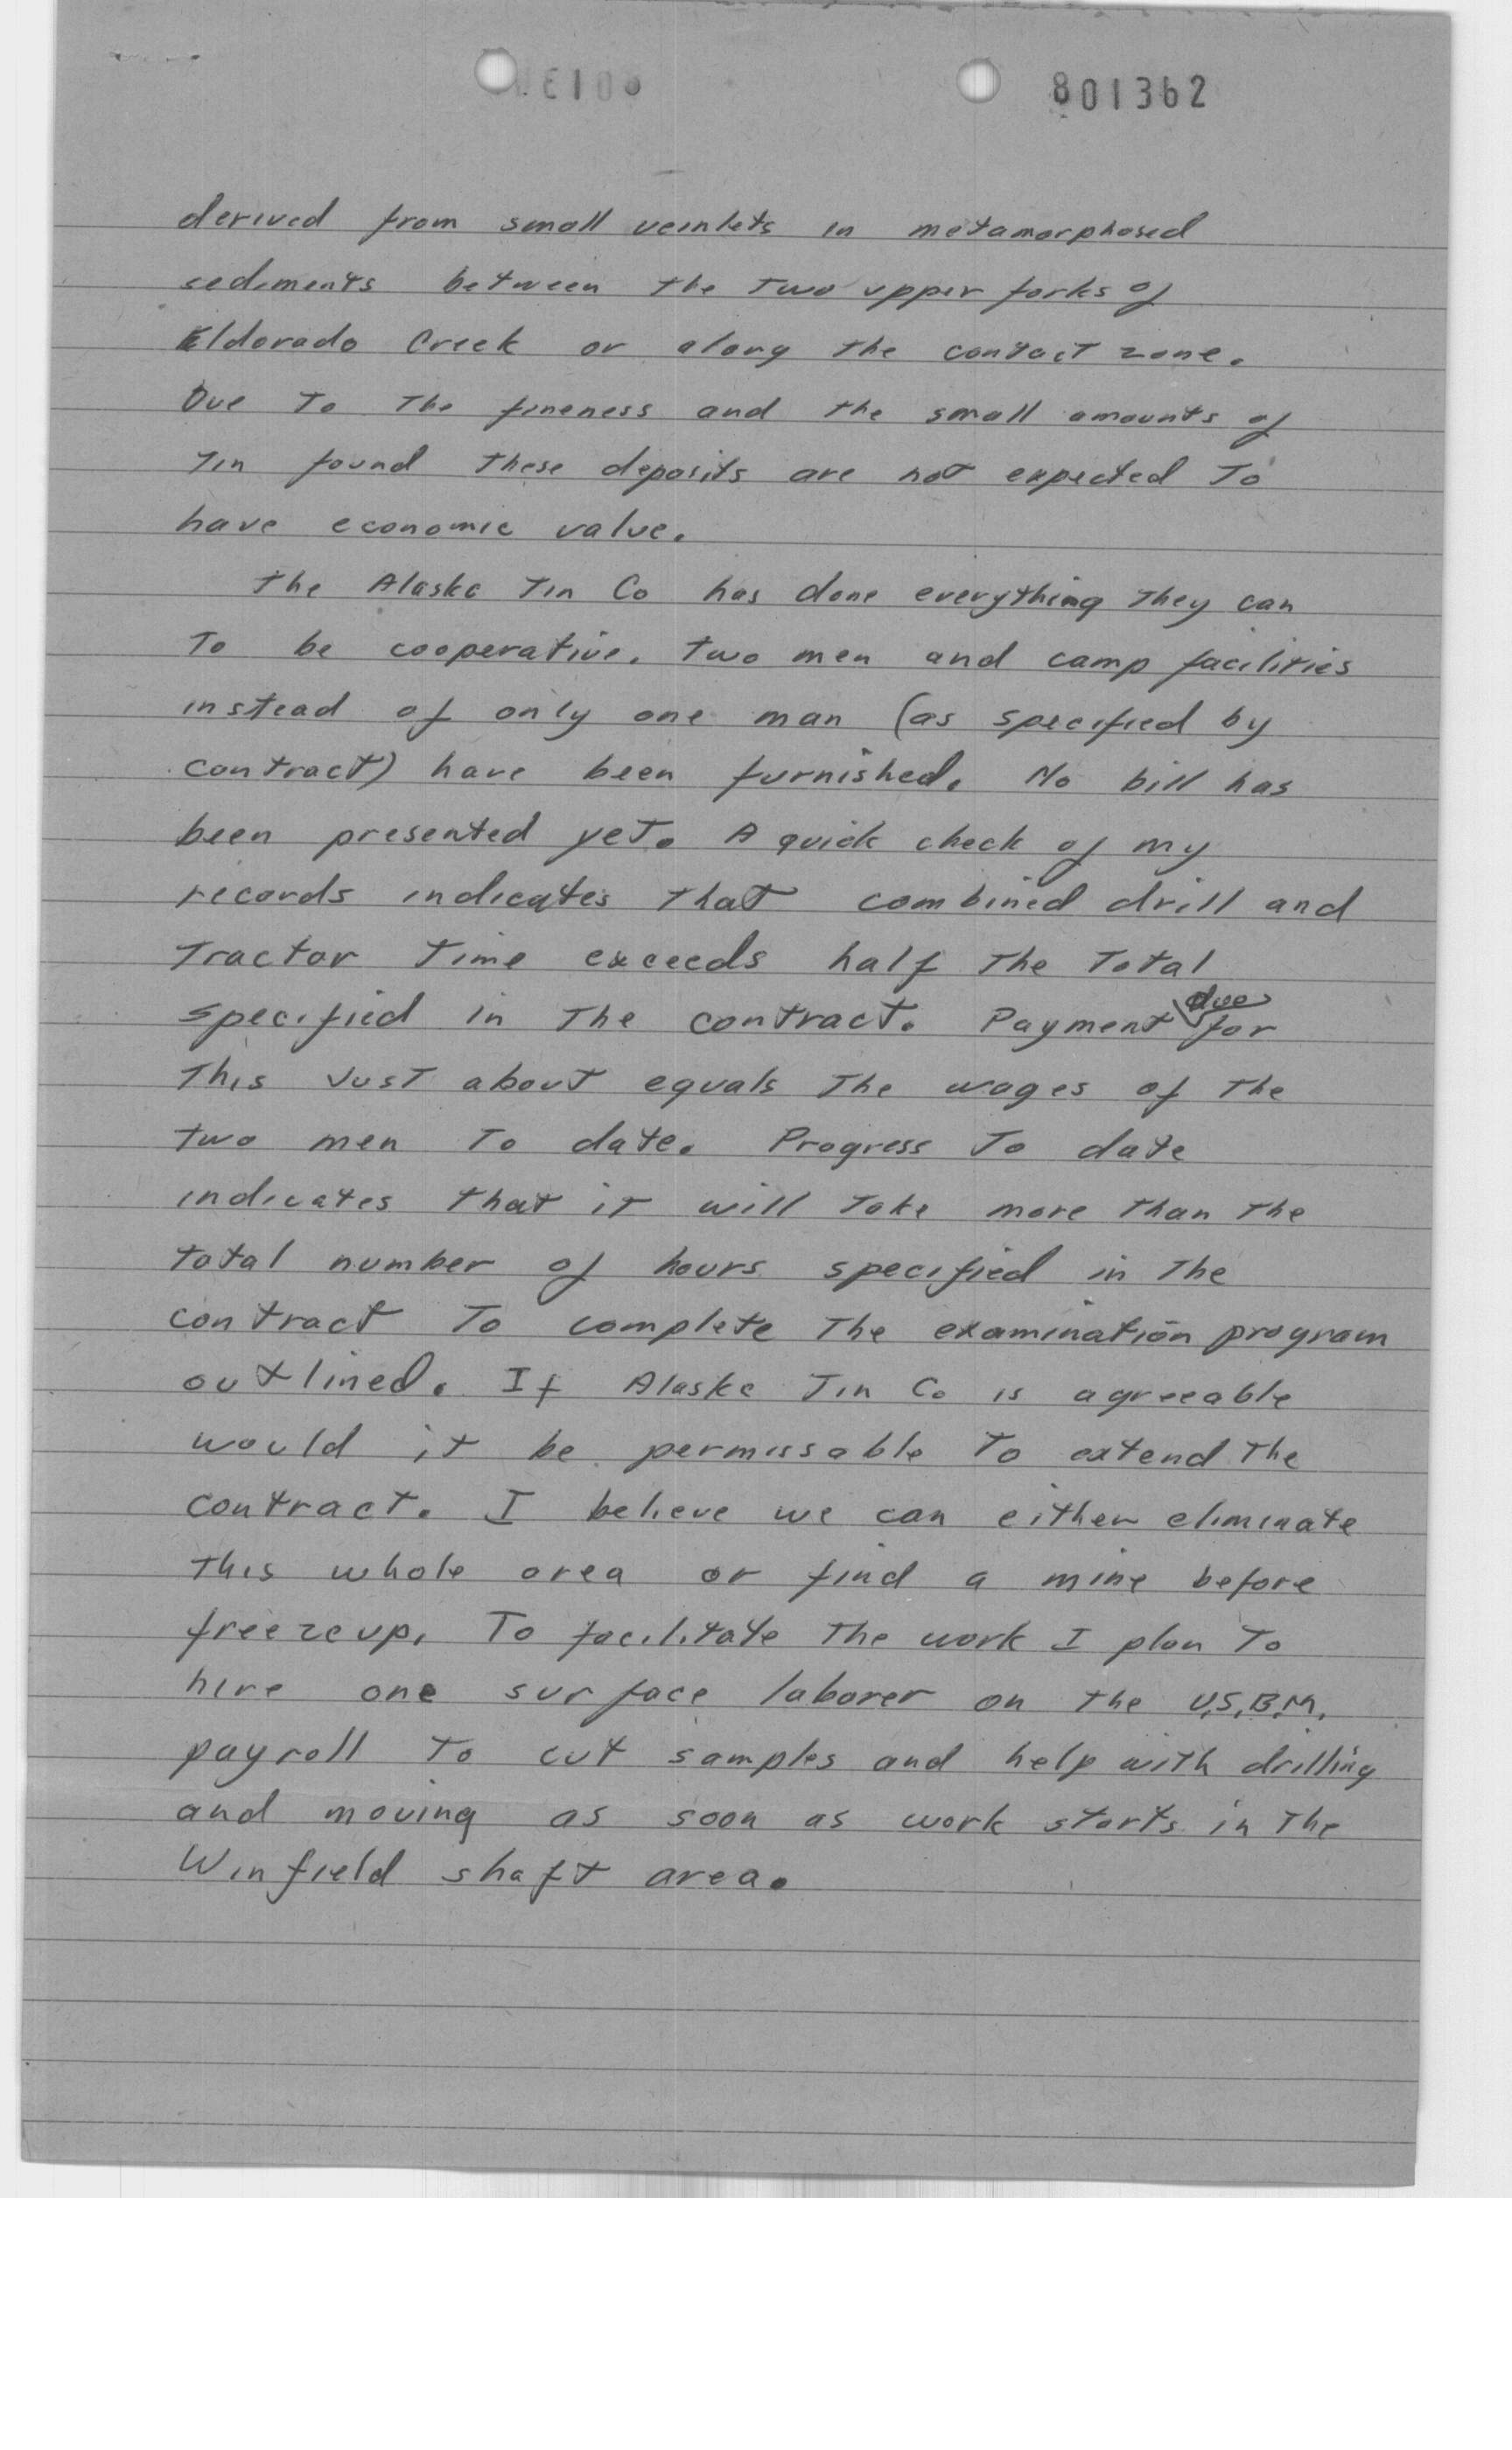 801362
derived from small veinlets in metamorphosed
sediments between the two upper forks of
Eldorado Creek or along the contact zone.
Due to the fineness and the small amounts of
tin found these deposits are not expected to
have economic value.
The Alaska Tin Co has done everything they can
to be cooperative. Two men and camp facilities
instead of only one man (as specified by
contract) have been furnished. No bill has
been presented yet. A quick check of my
records indicates that combined drill and
tractor time exceeds half the total
specified in the contract. Payment due for
this just about equals the wages of the
two men to date. Progress to date
indicates that it will take more than the
total number of hours specified in the
contract to complete the examination program
outlined. If Alaska Tin Co is agreeable
would it be permissable to extend the
contract. I believe we can either eliminate
this whole area or find a mine before
freezeup. To facilitate the work I plan to
hire one surface laborer on the U.S.B.M.
payroll to cut samples and help with drilling
and moving as soon as work starts in the
Winfield shaft area.